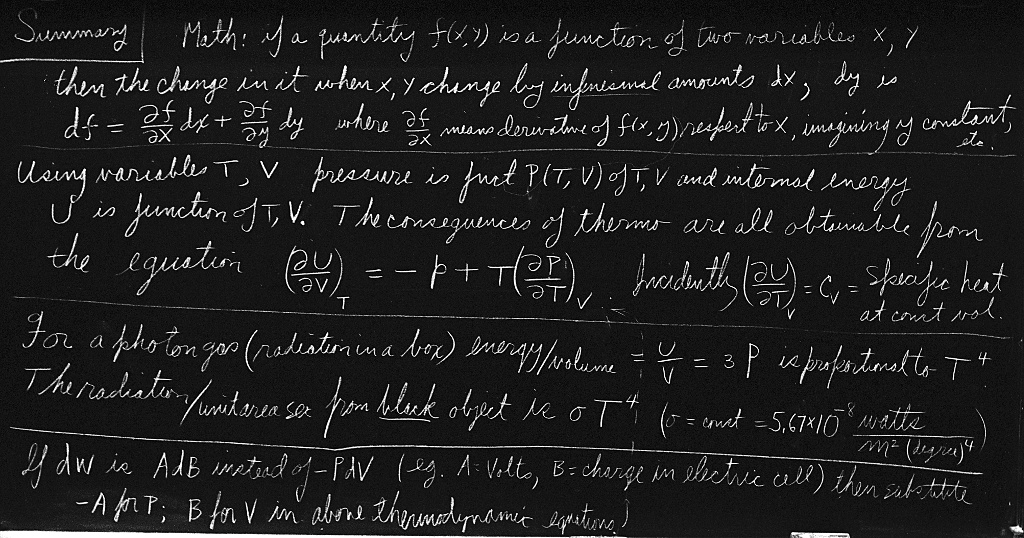 Summary Math: if a quantity f(x,y) is a function of two variables x, y
then the change in it when x, y change by infinisimal amounts dx, dy is
df = ∂f/∂x dx + ∂f/∂y dy where ∂f/∂x means derivative of f(x,y) respect to x, imagining y constant, etc.
Using variables T, V pressure is funct P(T,V) of T, V and internal energy
U is function of T, V. The consequences of thermo are all obtainable from
the equation (∂U/∂V)_T = - P + T(∂P/∂T)_V. Incidently (∂U/∂T)_V = C_V = Specific heat at const vol.
For a photon gas (radiation in a box) energy/volume = U/V = 3 P is proportional to T⁴.
The radiation/unit area sec from black object is σT⁴ (σ = const = 5,67×10⁻⁸ watts/m² (degree)⁴)
If dW is AdB instead of -PdV (eg. A = Volts, B = charge in electric cell) then substitute
-A for P; B for V in above thermodynamic equations)